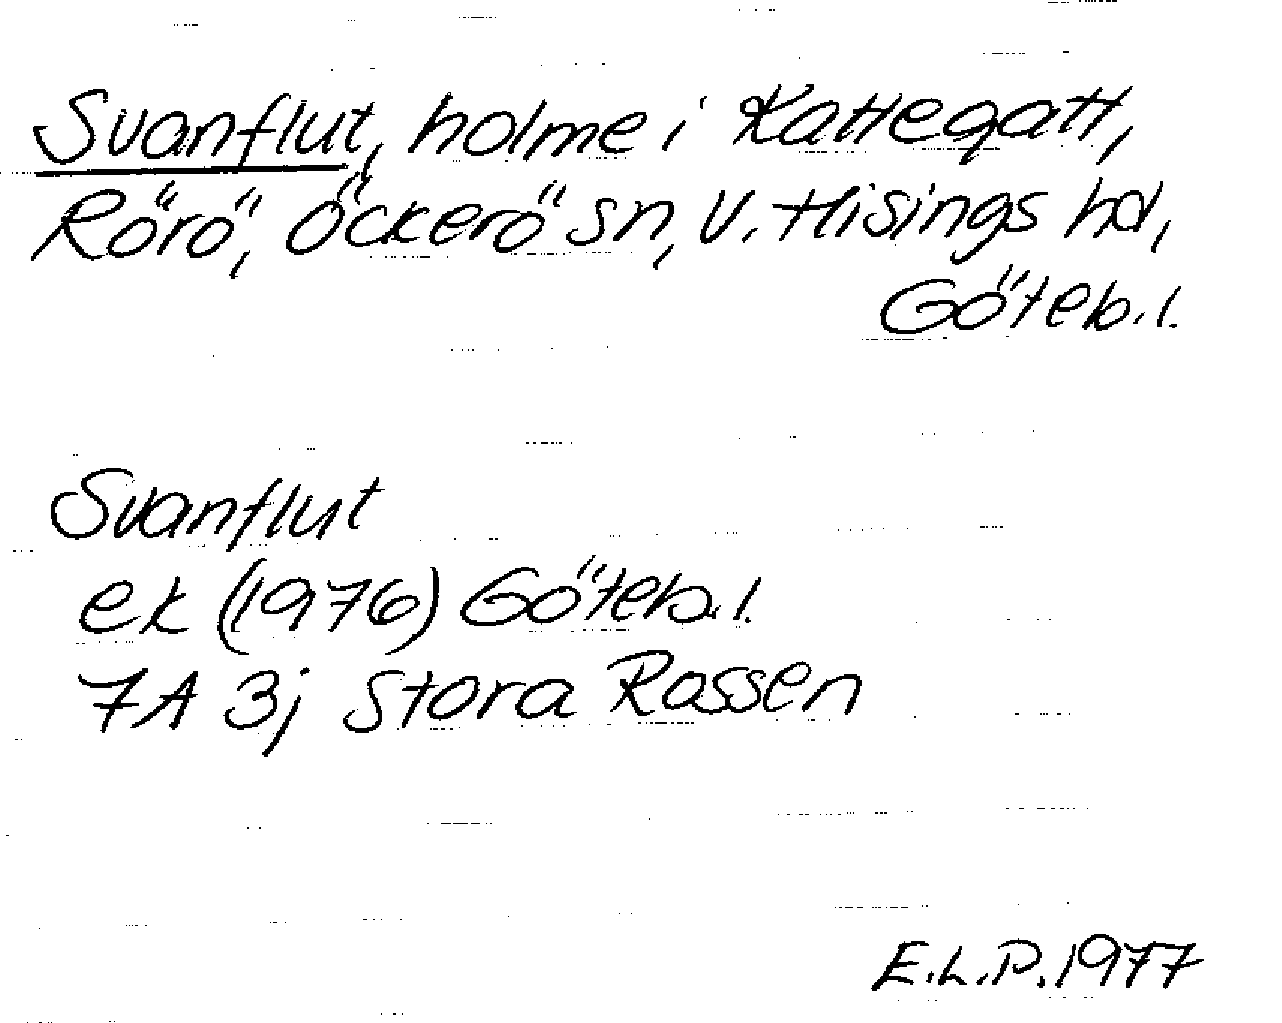 Svanflut, holme i Kattegatt,
Rörö, Öckerö sn, V. Hisings hd,
Göteb.l.
Svanflut
ek (1976) Göteb.l.
7A 3j Stora Rossen
E.L.P. 1977